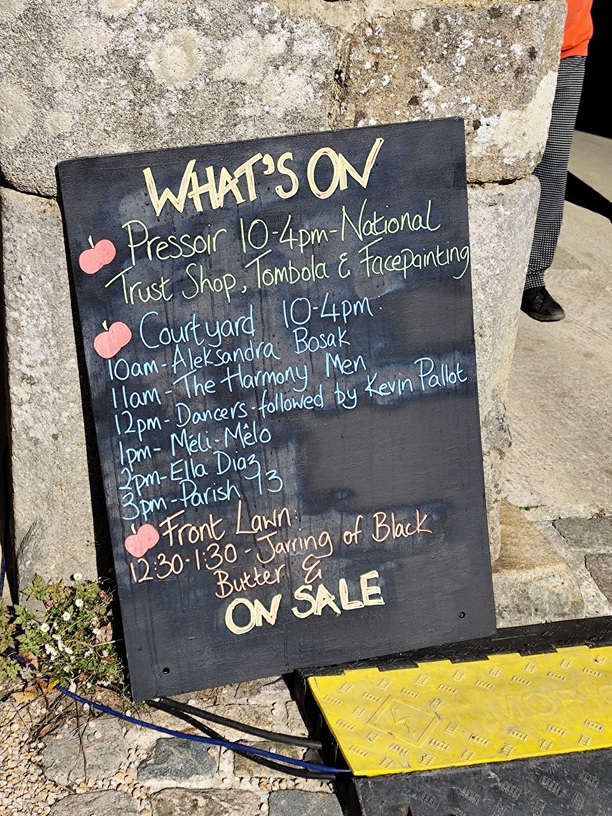 WHAT'S ON
Pressoir 10-4pm - National
Trust Shop, Tombola & Facepainting
Courtyard 10-4pm:
10am - Aleksandra Bosak
11am - The Harmony Men
12pm - Dancers - followed by Kevin Pallot
1pm - Méli-Mêlo
2pm - Ella Diaz
3pm - Parish 13
Front Lawn:
12:30-1:30 - Jarring of Black
Butter &
ON SALE